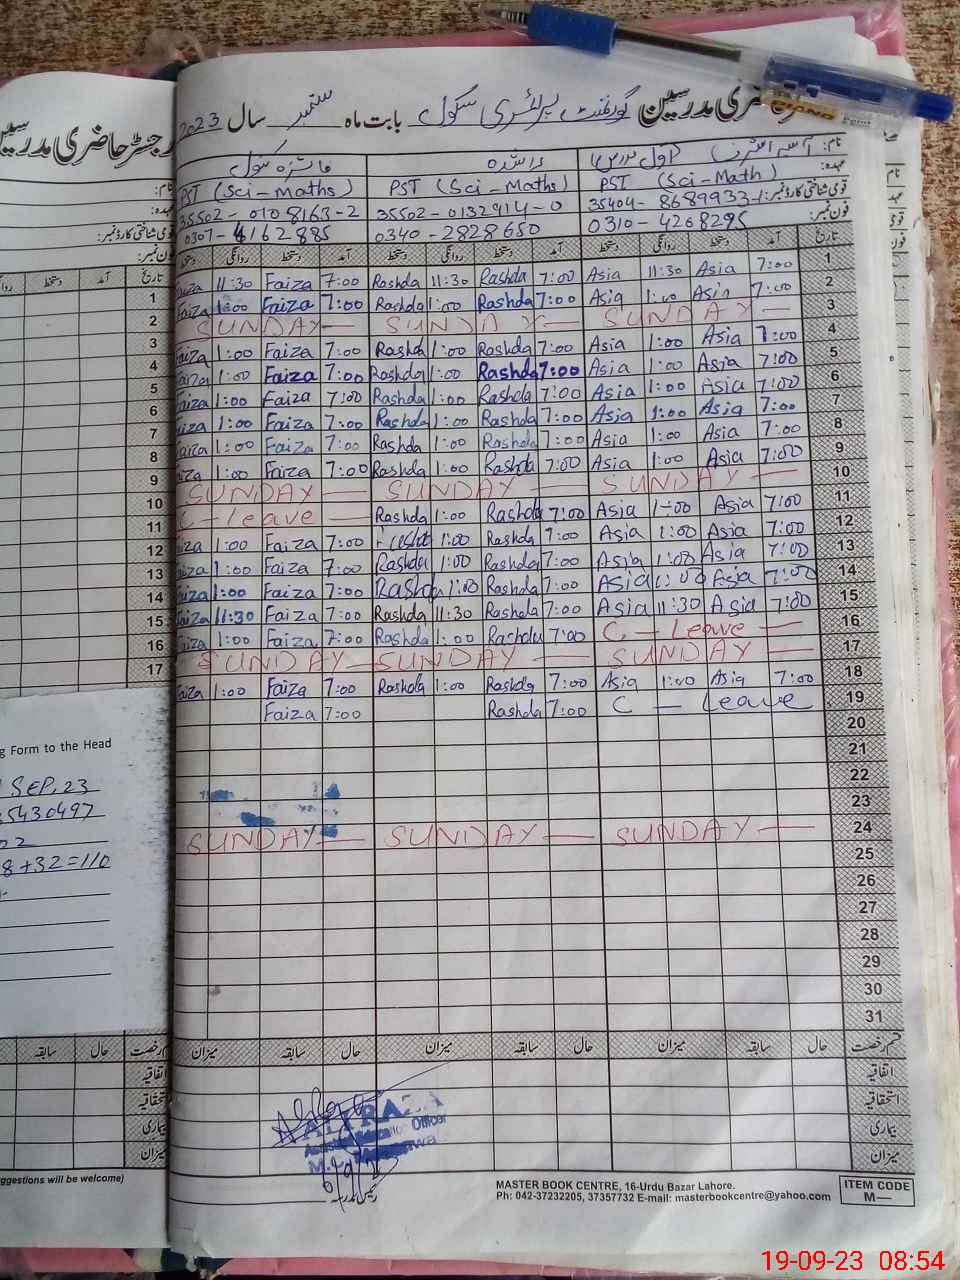 رجسٹر حاضری مدرسین گورنمنٹ پرائمری سکول بابت ماہ ستمبر سال 2023
نام:
عہدہ: PST (Sci-Math) PST (Sci-Maths) PST (Sci-Maths)
قومی شناختی کارڈ نمبر: 35404-8689933- 35502-0132914-0 35502-0108163-2
فون نمبر: 0310-4268295 0340-2828650 0307-4162885
تاریخ آمد دستخط روانگی دستخط آمد دستخط روانگی دستخط آمد دستخط روانگی دستخط
Faiza 11:30 Faiza 7:00 Rashda 11:30 Rashda 7:00 Asia 11:30 Asia 7:00 1
Faiza 1:00 Faiza 7:00 Rashda 1:00 Rashda 7:00 Asia 1:00 Asia 7:00 2
SUNDAY — SUNDAY — SUNDAY — 3
Faiza 1:00 Faiza 7:00 Rashda 1:00 Rashda 7:00 Asia 1:00 Asia 7:00 4
Faiza 1:00 Faiza 7:00 Rashda 1:00 Rashda 7:00 Asia 1:00 Asia 7:00 5
Faiza 1:00 Faiza 7:00 Rashda 1:00 Rashda 7:00 Asia 1:00 Asia 7:00 6
Faiza 1:00 Faiza 7:00 Rashda 1:00 Rashda 7:00 Asia 1:00 Asia 7:00 7
Faiza 1:00 Faiza 7:00 Rashda 1:00 Rashda 7:00 Asia 1:00 Asia 7:00 8
Faiza 1:00 Faiza 7:00 Rashda 1:00 Rashda 7:00 Asia 1:00 Asia 7:00 9
SUNDAY — SUNDAY — SUNDAY — 10
C-leave — Rashda 1:00 Rashda 7:00 Asia 1:00 Asia 7:00 11
Faiza 1:00 Faiza 7:00 1:00 Rashda 7:00 Asia 1:00 Asia 7:00 12
Faiza 1:00 Faiza 7:00 Rashda 1:00 Rashda 7:00 Asia 1:00 Asia 7:00 13
Faiza 1:00 Faiza 7:00 Rashda 1:00 Rashda 7:00 Asia 1:00 Asia 7:00 14
Faiza 11:30 Faiza 7:00 Rashda 11:30 Rashda 7:00 Asia 11:30 Asia 7:00 15
Faiza 1:00 Faiza 7:00 Rashda 1:00 Rashda 7:00 C — Leave — 16
SUNDAY — SUNDAY — SUNDAY — 17
Faiza 1:00 Faiza 7:00 Rashda 1:00 Rashda 7:00 Asia 1:00 Asia 7:00 18
Faiza 7:00 Rashda 7:00 C — Leave 19
20
21
22
23
SUNDAY — SUNDAY — SUNDAY — 24
25
26
27
28
29
30
31
قسم رخصت حال سابقہ میزان حال سابقہ میزان حال سابقہ میزان
اتفاقیہ
استحقاقیہ
بیماری
میزان
ALI RAZA
Assistant Education Officer
رئیس مدرسہ
MASTER BOOK CENTRE, 16-Urdu Bazar Lahore.
Ph: 042-37232205, 37357732 E-mail: masterbookcentre@yahoo.com
ITEM CODE
M—
رجسٹر حاضری مدرسین
نام:
عہدہ:
قومی شناختی کارڈ نمبر:
فون نمبر:
تاریخ آمد دستخط
1
2
3
4
5
6
7
8
9
10
11
12
13
14
15
16
17
g Form to the Head
SEP, 23
5430497
02
8+32=110
قسم رخصت حال سابقہ
اتفاقیہ
استحقاقیہ
بیماری
میزان
ggestions will be welcome)
19-09-23 08:54